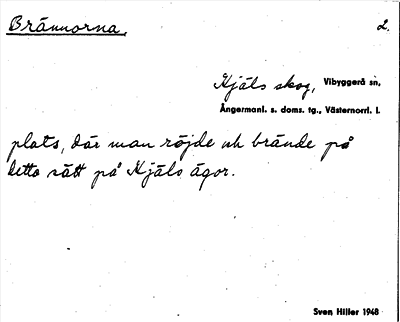 Brännorna. 2.
Kjäls skog, Vibyggerå sn,
Ångermanl. s. doms. tg., Västernorrl. l.
plats, där man röjde och brände på
detta sätt på Kjäls ägor.
Sven Hiller 1948